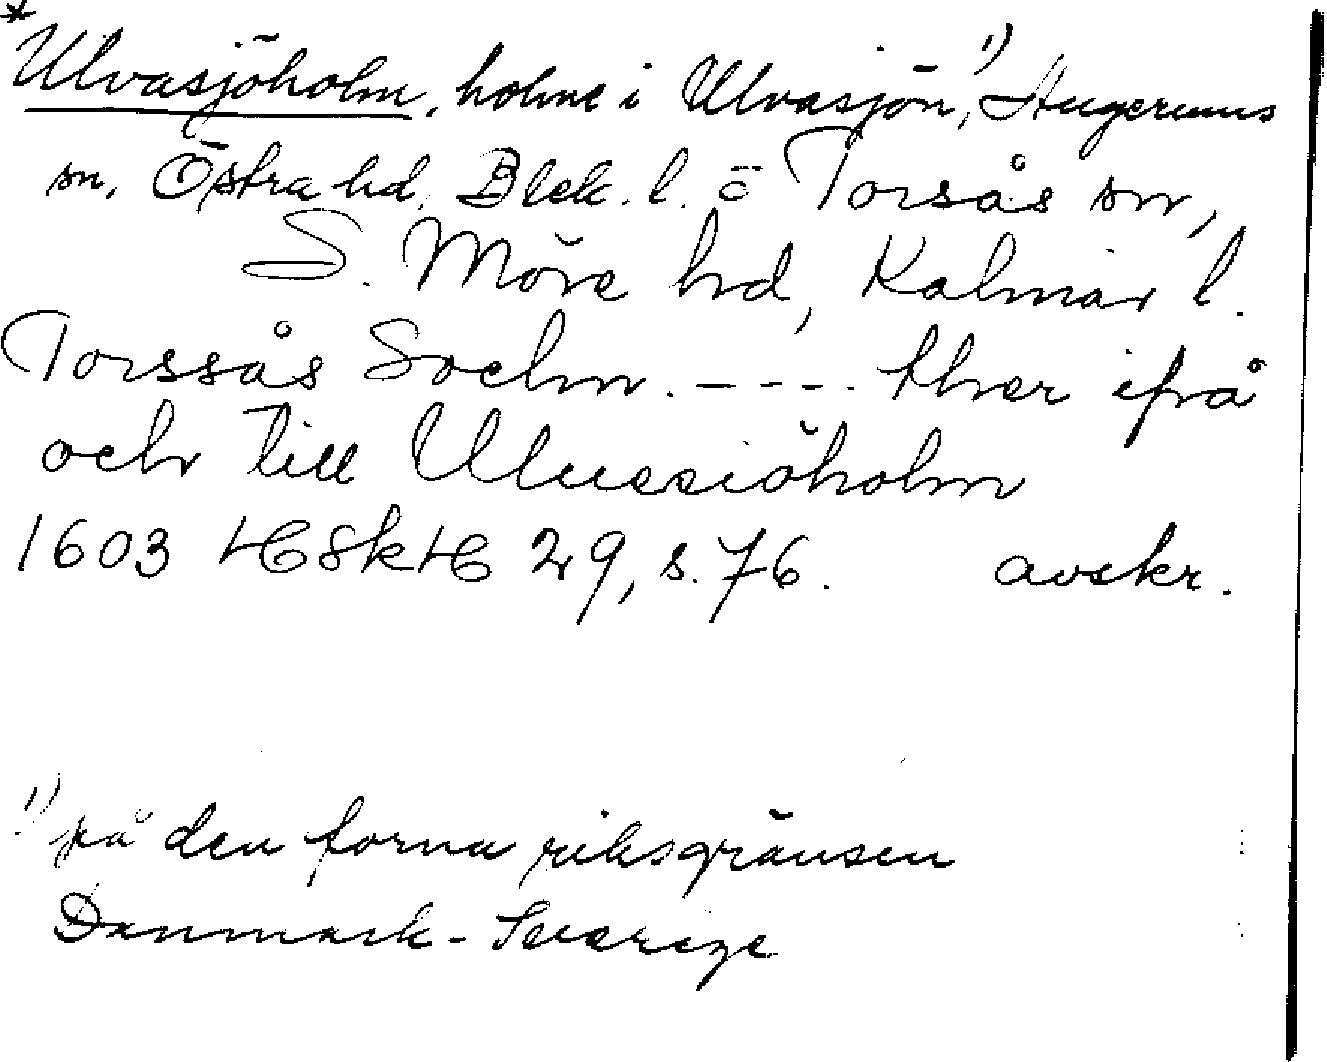 *Ulvasjöholm, holme i Ulvasjön,¹⁾ Hugerums
sn, Östra hd, Blek. l. o Torsås sn,
S. Möre hd, Kalmar l.
Torssås Sochn. - - - - thver ifrå
och till Ulussiöholm
1603 HSkH 29, s. 76. avskr.
¹⁾ på den forna riksgränsen
Danmark - Sverige